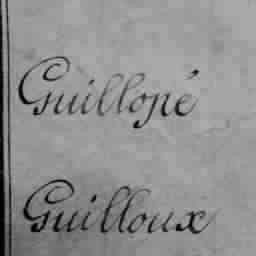 Guillopé
Guilloux